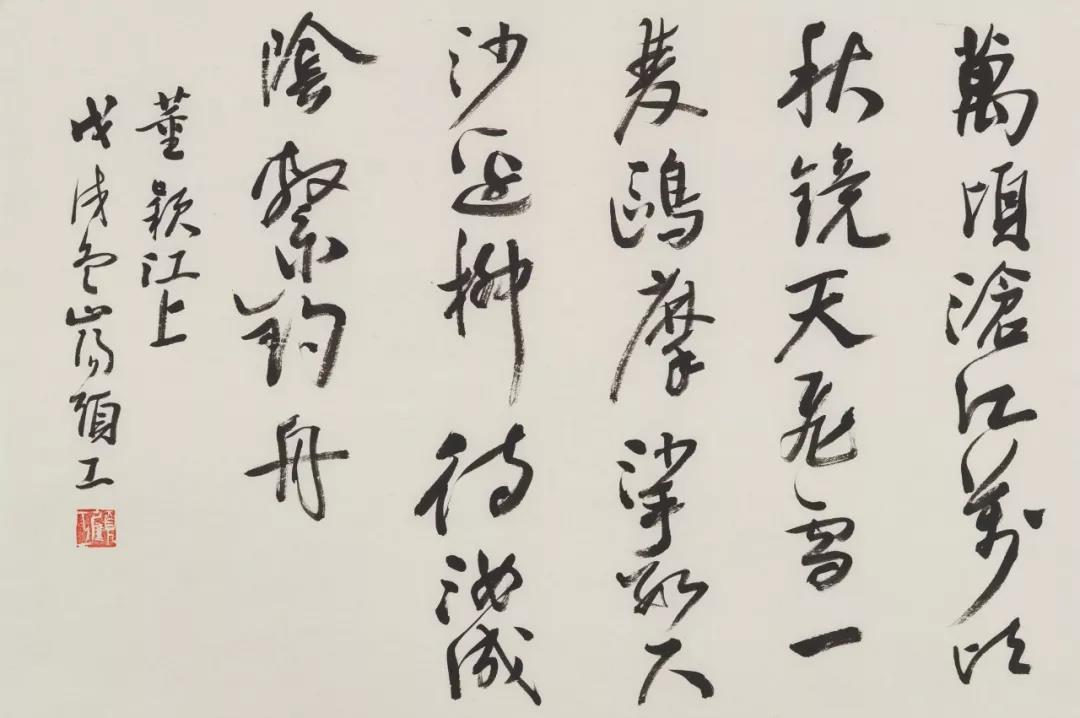 萬頃滄江萬頃
秋鏡天飛雪一
雙鷗摩挲數尺
沙邊柳待汝成
陰繫釣舟
董穎江上
戊戌山陽顧工